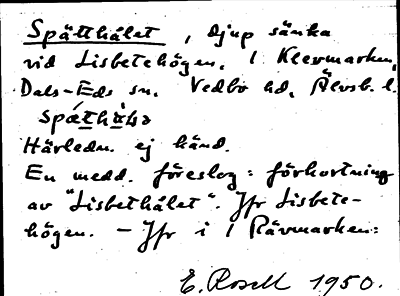 Spätthålet, djup sänka
vid Lisbetehögen. I Klevmarken,
Dals-Eds sn. Vedbo hd. Älvsb. l.
spáthå̀lə
Härledn. ej känd.
En medd. föreslog: förkortning
av "Lisbethålet". Jfr Lisbete-
högen. – Jfr i I Rävmarken:
E. Rosell 1950.